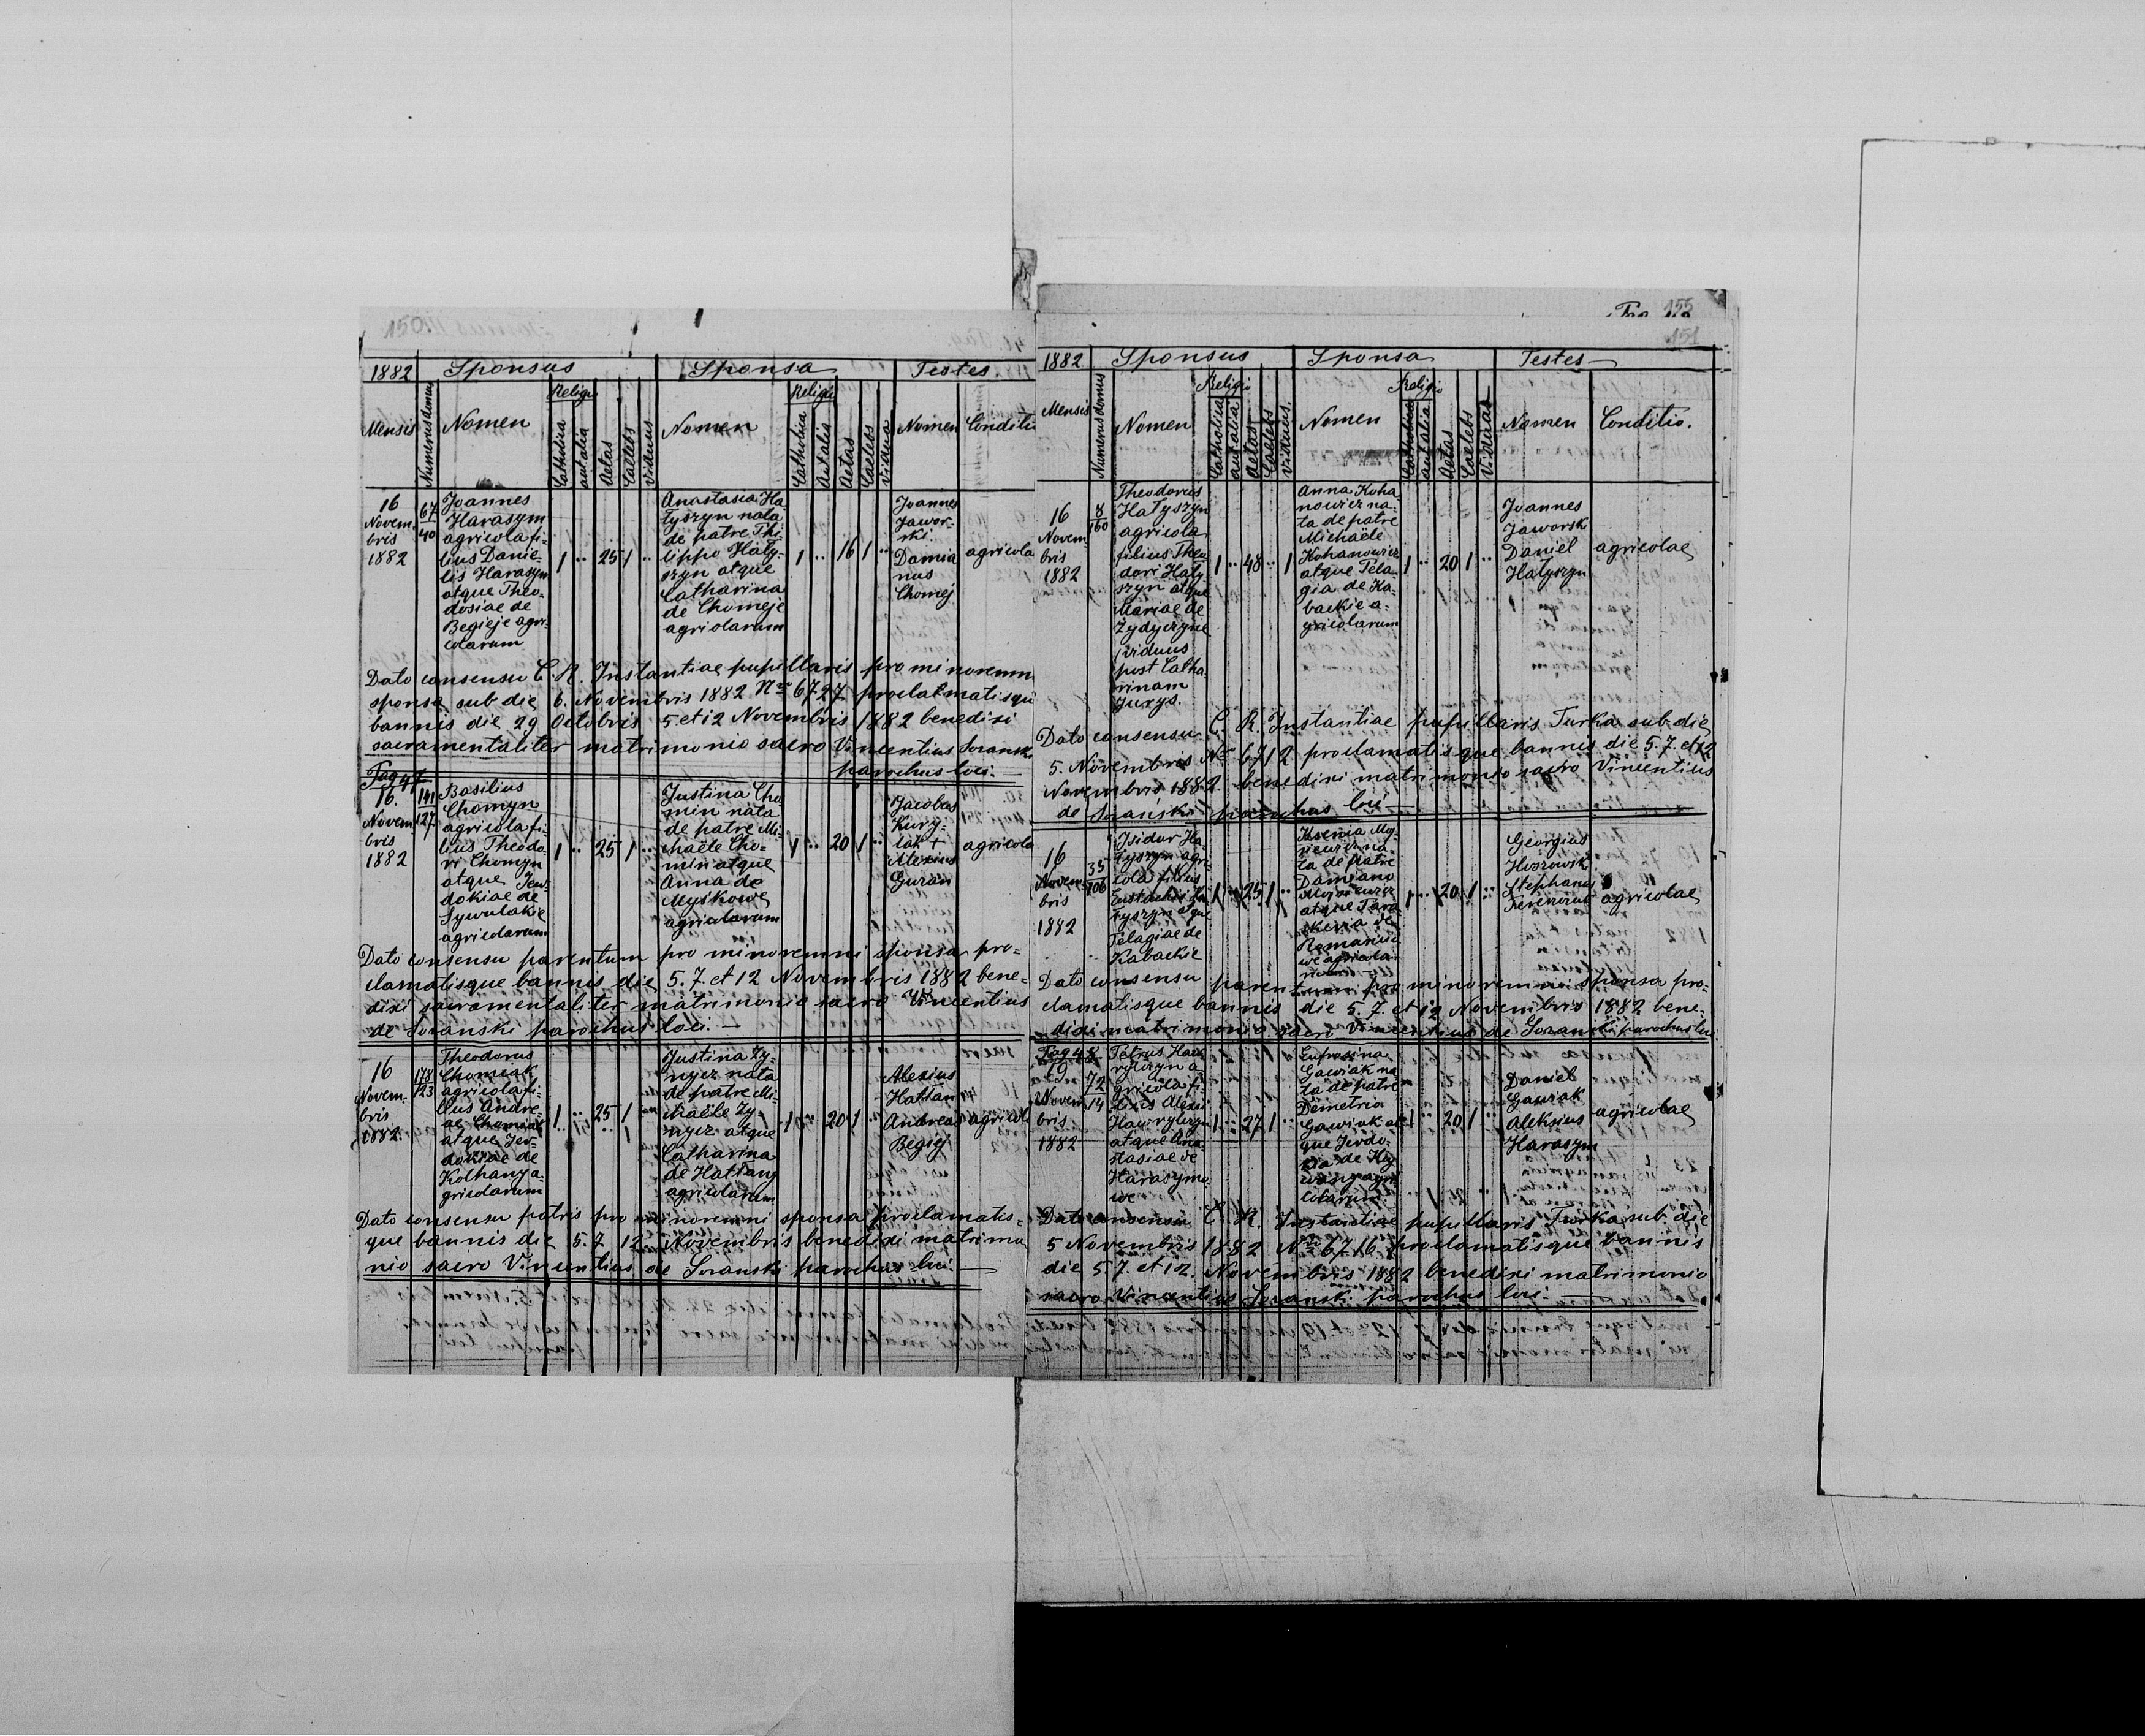 150.
1882 Sponsus Sponsa Testes
Religi Religi
Mensis Numerus domus Nomen Catholica autalia Aetas Caelebs Viduus Nomen Catholica Autalia Aetas Caelebs Vidua Nomen Conditi
16
Novem.
bris
1882
67
40
Joannes
Harasym
agricola fi-
lius Danie-
lis Harasym
atque Theo-
dosiae de
Begieje agri-
colarum
1 .. 25 1 ..
Anastasia Ha-
tyszyn nata
de patre Thi-
lippo Haty-
szyn atque
Catharina
de Chomeje
agriolarum
1 .. 16 1 ..
Joannes
Jawor-
ski.
Damia
nus
Chomej
agricola
Dato consensu C. R. Instantiae pupillaris pro minorenn
sponsa sub die 6. Novembris 1882 Nro 6727 proclamatisqu
bannis die 29 Octobris 5 et 12 Novembris 1882 benedixi
sacramentaliter matrimonio sacro Vincentius Soransk
parochus loci.
Pag 47
16.
Novem
bris
1882
141
127
Basilius
Chomyn
agricola fi-
lius Theodo-
ri Chomyn
atque Jew-
dokiae de
Sywulakie
agricolarum
1 .. 25 1 ..
Justina Cho
min nata
de patre Mi-
chaële Cho-
min atque
Anna de
Myskowe
agricolarum
1 .. 20 1 ..
Jacobus
Kury-
lak +
Alexius
Guran
agricola
Dato consensu parentum pro minorenni sponsa pro-
clamatisque bannis die 5. 7. et 12 Novembris 1882 bene-
dixi sacramentaliter matrimonio sacro Vincentius
de Soranski parochus loci. —
16
Novem-
bris
1882.
178
123
Theodorus
Chomiak
agricola fi-
lius Andre-
ae Chomiak
atque Jew-
dokiae de
Kolhany a-
gricolarum
1 .. 25 1
Justina Zy-
nycz nata
de patre Mi-
chaële Zy-
nycz atque
Catharina
de Hattany
agricolarum
1 .. 20 1
Alexius
Hattan
Andreas
Begiej
agricol
Dato consensu patris pro minorenni sponsa proclamatis-
que bannis die 5. 7 12 Novembris benedixi matrimo
nio sacro Vincentius de Soranski parochus loci. —
155
151
1882 Sponsus Sponsa Testes
Religio Religio
Mensis Numerus domus Nomen Catholica autalia Aetas Caelebs Viduus. Nomen Catholica autalia Aetas Caelebs Vidua Nomen Conditio.
16
Novem-
bris
1882
8
160
Theodorus
Hatyszyn
agricola
filius Theo
dori Haty-
szyn atque
Mariae de
Zydyczyne
viduus
post Catha-
rinam
Jurys.
1 .. 48 .. 1
Anna Koha-
nowicz na-
ta de patre
Michaële
Kohanowicz
atque Pela-
gia de Ka-
backie a-
gricolarum
1 .. 20 1 ..
Joannes
Jaworski
Daniel
Hatyszyn
agricolae
Dato consensu C. R. Instantiae pupillaris Turka sub die
5. Novembris Nro 6712 proclamatisque bannis die 5. 7. et 12
Novembris 1882. benedixi matrimonio sacro Vincentius
de Soański parochus loci —
16
Novem-
bris
1882
35
106
Isidor Ha-
tyszyn agri-
cola filius
Eustachii Ha
tyszyn atque
Pelagiae de
Kabackie
1 .. 25 1 ..
Ksenia My-
na-
ta de patre
Damiano
atque Para-
skevia de
we agricola-
rum
1 .. 20 1 ..
Georgius
Stephanus
agricolae
Dato consensu parentum pro minorenni sponsa pro-
clamatisque bannis die 5. 7. et 12 Novembris 1882 bene-
dixi matrimonio sacro Vincentius de Soranski parochus loci
Pag 48
19
Novem
bris
1882
72
14
Petrus Haw
rylczyn a-
gricola fi-
lius Alexi
Hawrylczyn
atque Ana-
stasiae de
Harasymo
we
1 .. 27 1 ..
Eufrosina
Gawiak na
ta de patre
Demetrio
Gawiak at
que Jewdo-
kia de
agri
colarum
1 .. 20 1 ..
Daniel
Gawiak
Aleksius
Harasym
agricolae
Dato consensu C. R. Instantiae pupillaris Turka sub. die
5 Novembris 1882 Nro 6716 proclamatisque bannis
die 5 7. et 12. Novembris 1882 benedixi matrimonio
sacro Vincentius Soransk. parochus loci —